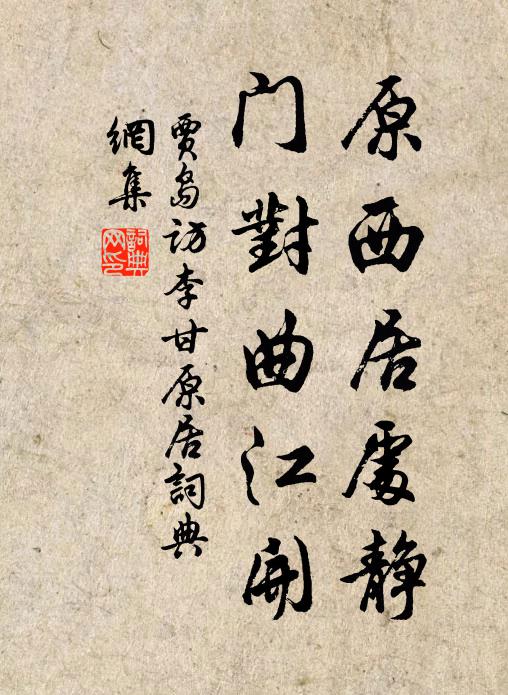 原西居處静
门對曲江開
賈島访李甘原居詞典
網集
詞典網印